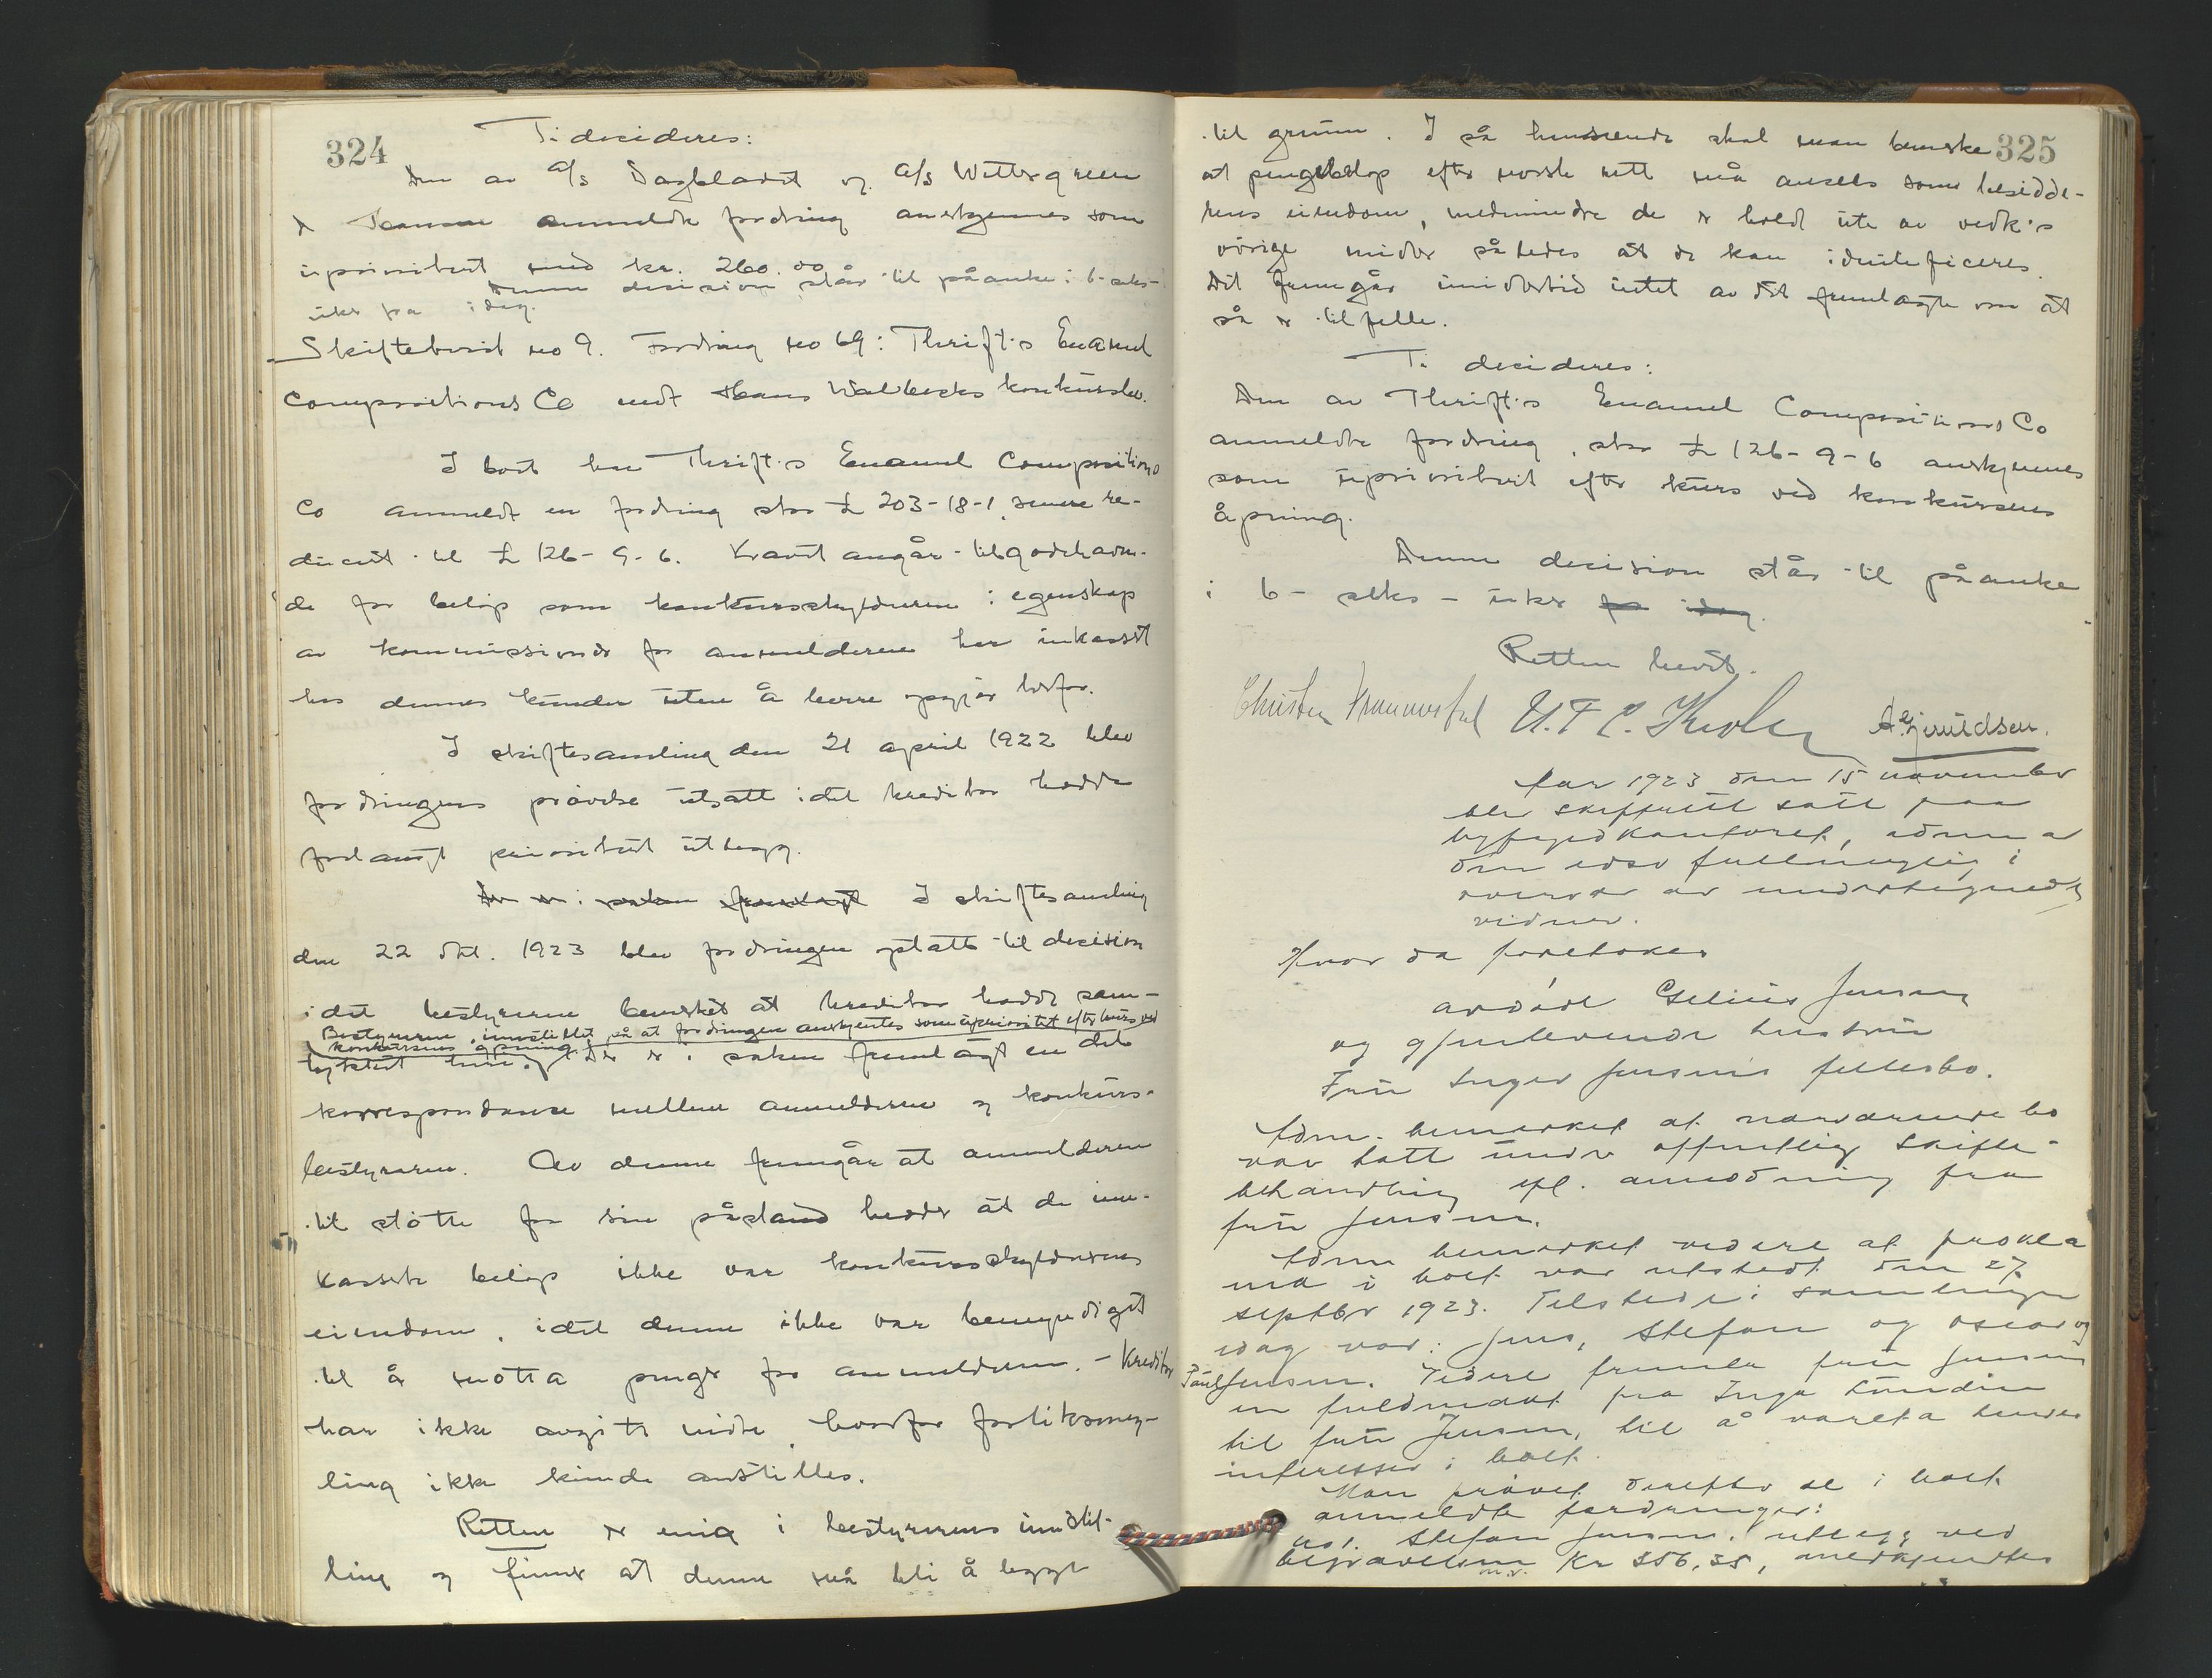 324
Ti decideres:
Den av A/s Dagbladet og A/s Wittergreen
& anmeldte fordring anerkjennes som
uprioritert med kr. 260.00
Denne decision står til påanke i 6-seks-
uker fra idag.
Skiftetvist no 9. Fordring no 69: Thrift's Enamel
Compositions Co mot Hans Walbecks konkursbo.
I boet har Thrift's Enamel Compositions
Co anmeldt en fordring stor £ 203-18-1, senere re-
ducert til £ 126-9-6. Kravet angår tilgodehaven-
de for beløp som konkursskyldneren i egenskap
av kommissionær for anmelderen har inkassert
hos dennes kunder uten å levere opgjør herfor.
I skiftesamling den 21 april 1922 blev
fordringens prøvelse utsatt idet kreditor hadde
forlangt prioritert utlegg.
Der er i saken fremlagt I skiftesamling
den 22 okt. 1923 blev fordringen optatt til decision
idet bestyreren bemerket at kreditor hadde sam-
Bestyreren innstillet på at fordringen anerkjentes som uprioritert efter kurs ved
konkursens åpning.
tykket heri. Der er i saken fremlagt en del
korrespondanse mellem anmelderen og konkurs-
bestyreren. Av denne fremgår at anmelderen
til støtte for sin påstand hevder at de inn-
kasserte beløp ikke var konkursskyldnerens
eiendom, idet denne ikke var bemyndiget
til å motta penger for anmelderen. - Kreditor
har ikke avgitt møte, hvorfor forliksmeg-
ling ikke kunde anstilles.
Retten er enig i bestyrerens innstil-
ling og finner at denne må bli å legge
325
til grunn. I så henseende skal man bemerke
at pengebeløp efter norsk rett må ansees som besidde-
rens eiendom, medmindre de er holdt ute av vedk's
øvrige midler således at de kan identificeres.
Det fremgår imidlertid intet av det fremlagte om at
så er tilfelle.
Ti decideres:
Den av Thrift's Enamel Compositions Co
anmeldte fordring, stor £ 126-9-6 anerkjennes
som uprioritert efter kurs ved konkursens
åpning.
Denne decision står til påanke
i 6 - seks - uker fra idag.
Retten hevet.
A. Gjeruldsen.
Aar 1923 den 15 november
blev skifterett satt paa
byfogedkontoret, adm. av
den edsv fullmægtig i
overvær av undertegnede
vidner.
Hvor da foretokes
avdøde Gelius Jensen
og gjenlevende hustru
Fru Inger Jensens fellesbo.
Adm. bemerket at nærværende bo
var tatt under offentlig skifte-
behandling efl. anmodning fra
fru Jensen.
Adm bemerket videre at prokla
ma i boet var utstedt den 27
septbr 1923. Tilstede i samlingen
idag var: Jens, Stefan og Oscar og
Paul Jensen. Videre fremla fru Jensen
en fuldmakt fra Inga Lundin
til fru Jensen, til å vareta hendes
interesser i boet.
Man prøvet derefter de i boet
anmeldte fordringer:
No 1. Stefan Jensen, utlegg ved
begravelsen m.v. Kr 356,35, anerkjendtes